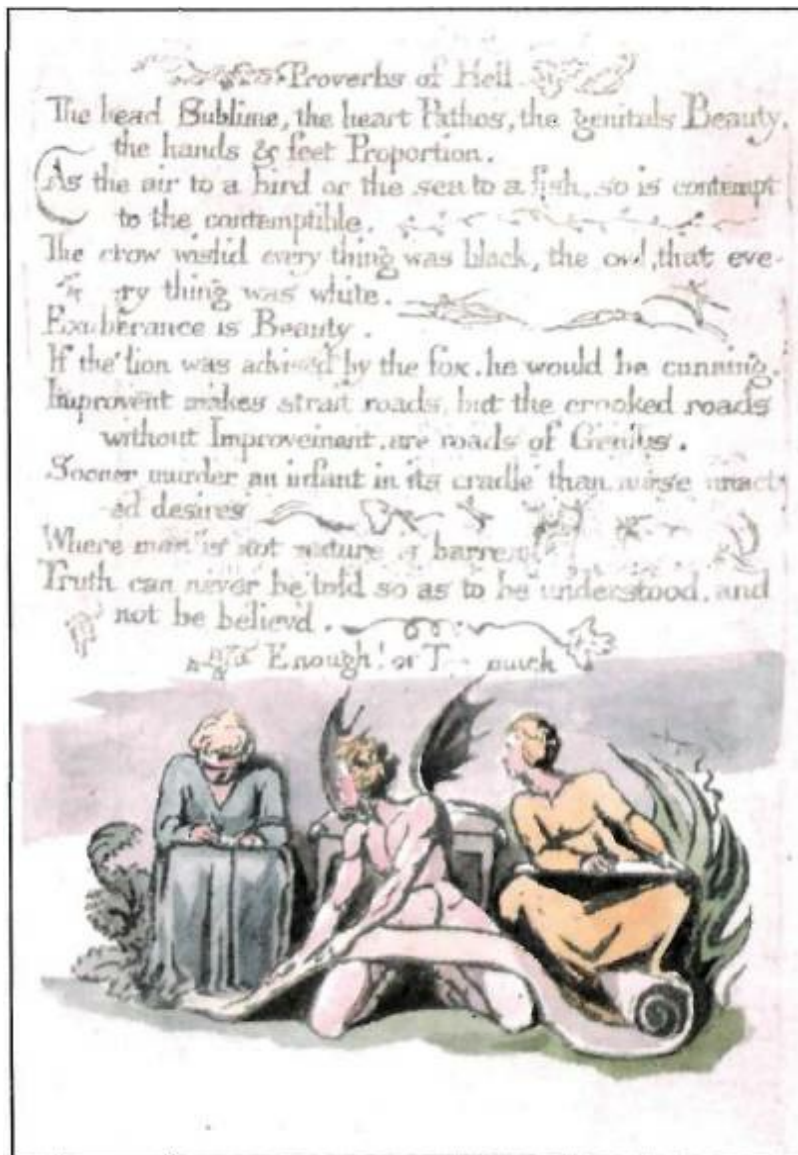 Proverbs of Hell.
The head Sublime, the heart Pathos, the genitals Beauty,
the hands & feet Proportion.
As the air to a bird or the sea to a fish, so is contempt
to the contemptible.
The crow wish'd every thing was black, the owl, that eve-
ry thing was white.
Exuberance is Beauty.
If the lion was advised by the fox. he would be cunning.
Improvent makes strait roads, but the crooked roads
without Improvement, are roads of Genius.
Sooner murder an infant in its cradle than nurse unact-
ed desires
Where man is not nature is barren
Truth can never be told so as to be understood, and
not be believ'd.
Enough! or T much